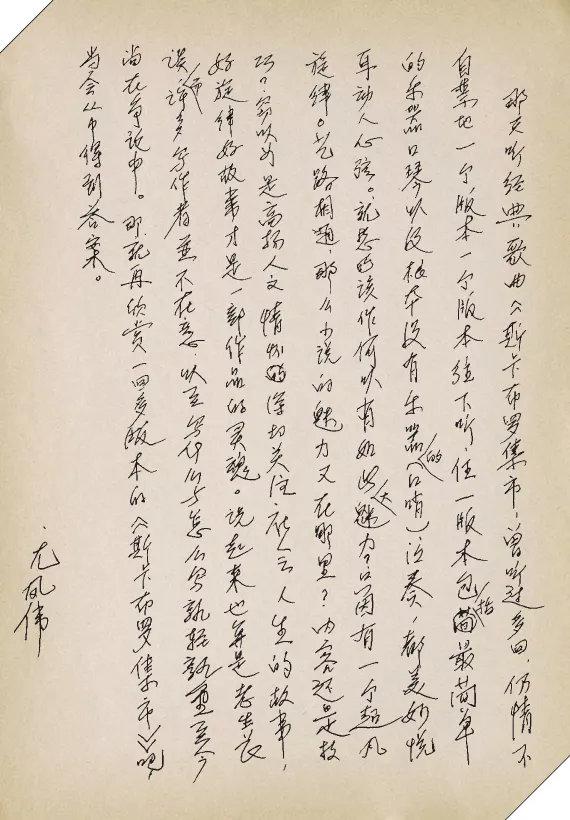 那天听经典歌曲《斯卡布罗集市》,曾听过多回,仍情不
自禁地一个版本一个版本往下听,任一版本包括最简单
的乐器口琴以及根本没有乐器的(口哨)泛奏,都美妙悦
耳动人心弦。就思忖该作何以有如此大魅力?只因有一个超凡
旋律。艺路相通,那么小说的魅力又在哪里?内容还是技
巧?窃以为是高扬人文情怀的深切关注社会人生的故事,
好旋律好故事才是一部作品的灵魂。说起来也算是老生长
谈,而许多写作者并不在意,以至写什么与怎么写孰轻孰重至今
尚在争议中。那就再欣赏一回多版本的《斯卡布罗集市》吧,
当会从中得到答案。
尤凤伟